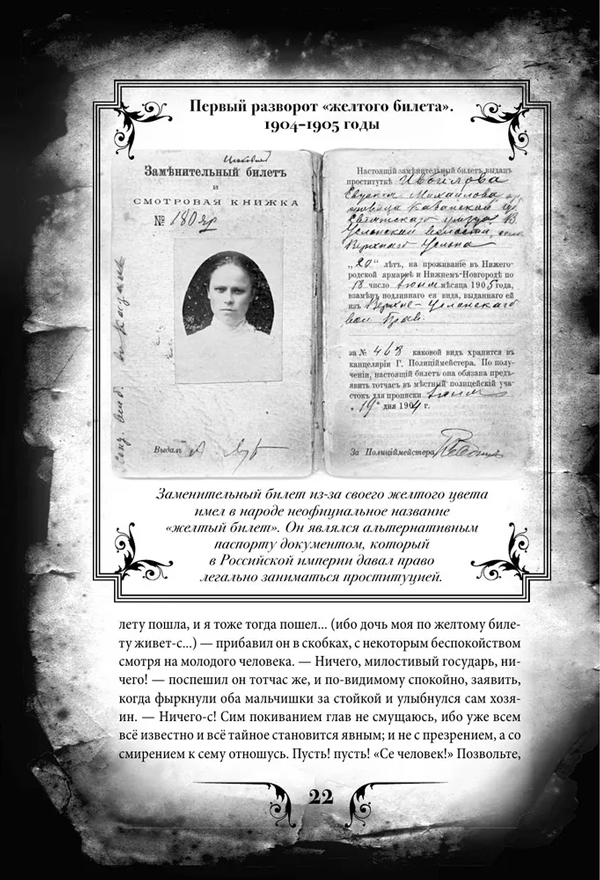 Первый разворот «желтого билета».
1904–1905 годы
Замѣнительный билетъ
и
СМОТРОВАЯ КНИЖКА
№ 180
Выдалъ
Настоящій замѣнительный билетъ выданъ
проституткѣ Ивойлова
Евдокія Михайлова
Казанской
Свіяжскаго уѣзда В.
Услонской волости
Верхняго Услона
„20" лѣтъ, на проживаніе въ Нижего-
родской ярмаркѣ и Нижнемъ-Новгородѣ по
18 число мѣсяца 1905 года,
взамѣнъ подлиннаго ея вида, выданнаго ей
изъ Верхне-Услонскаго
вол. Прав.
за № 463 каковой видъ хранится въ
канцеляріи Г. Полиціймейстера. По полу-
ченіи, настоящій билетъ она обязана предъ-
явить тотчасъ въ мѣстный полицейскій уча-
стокъ для прописки
„19" дня 1904 г.
За Полиціймейстера
Заменительный билет из-за своего желтого цвета
имел в народе неофициальное название
«желтый билет». Он являлся альтернативным
паспорту документом, который
в Российской империи давал право
легально заниматься проституцией.
лету пошла, и я тоже тогда пошел... (ибо дочь моя по желтому биле-
ту живет-с...) — прибавил он в скобках, с некоторым беспокойством
смотря на молодого человека. — Ничего, милостивый государь, ни-
чего! — поспешил он тотчас же, и по-видимому спокойно, заявить,
когда фыркнули оба мальчишки за стойкой и улыбнулся сам хозя-
ин. — Ничего-с! Сим покиванием глав не смущаюсь, ибо уже всем
всё известно и всё тайное становится явным; и не с презрением, а со
смирением к сему отношусь. Пусть! пусть! «Се человек!» Позвольте,
22